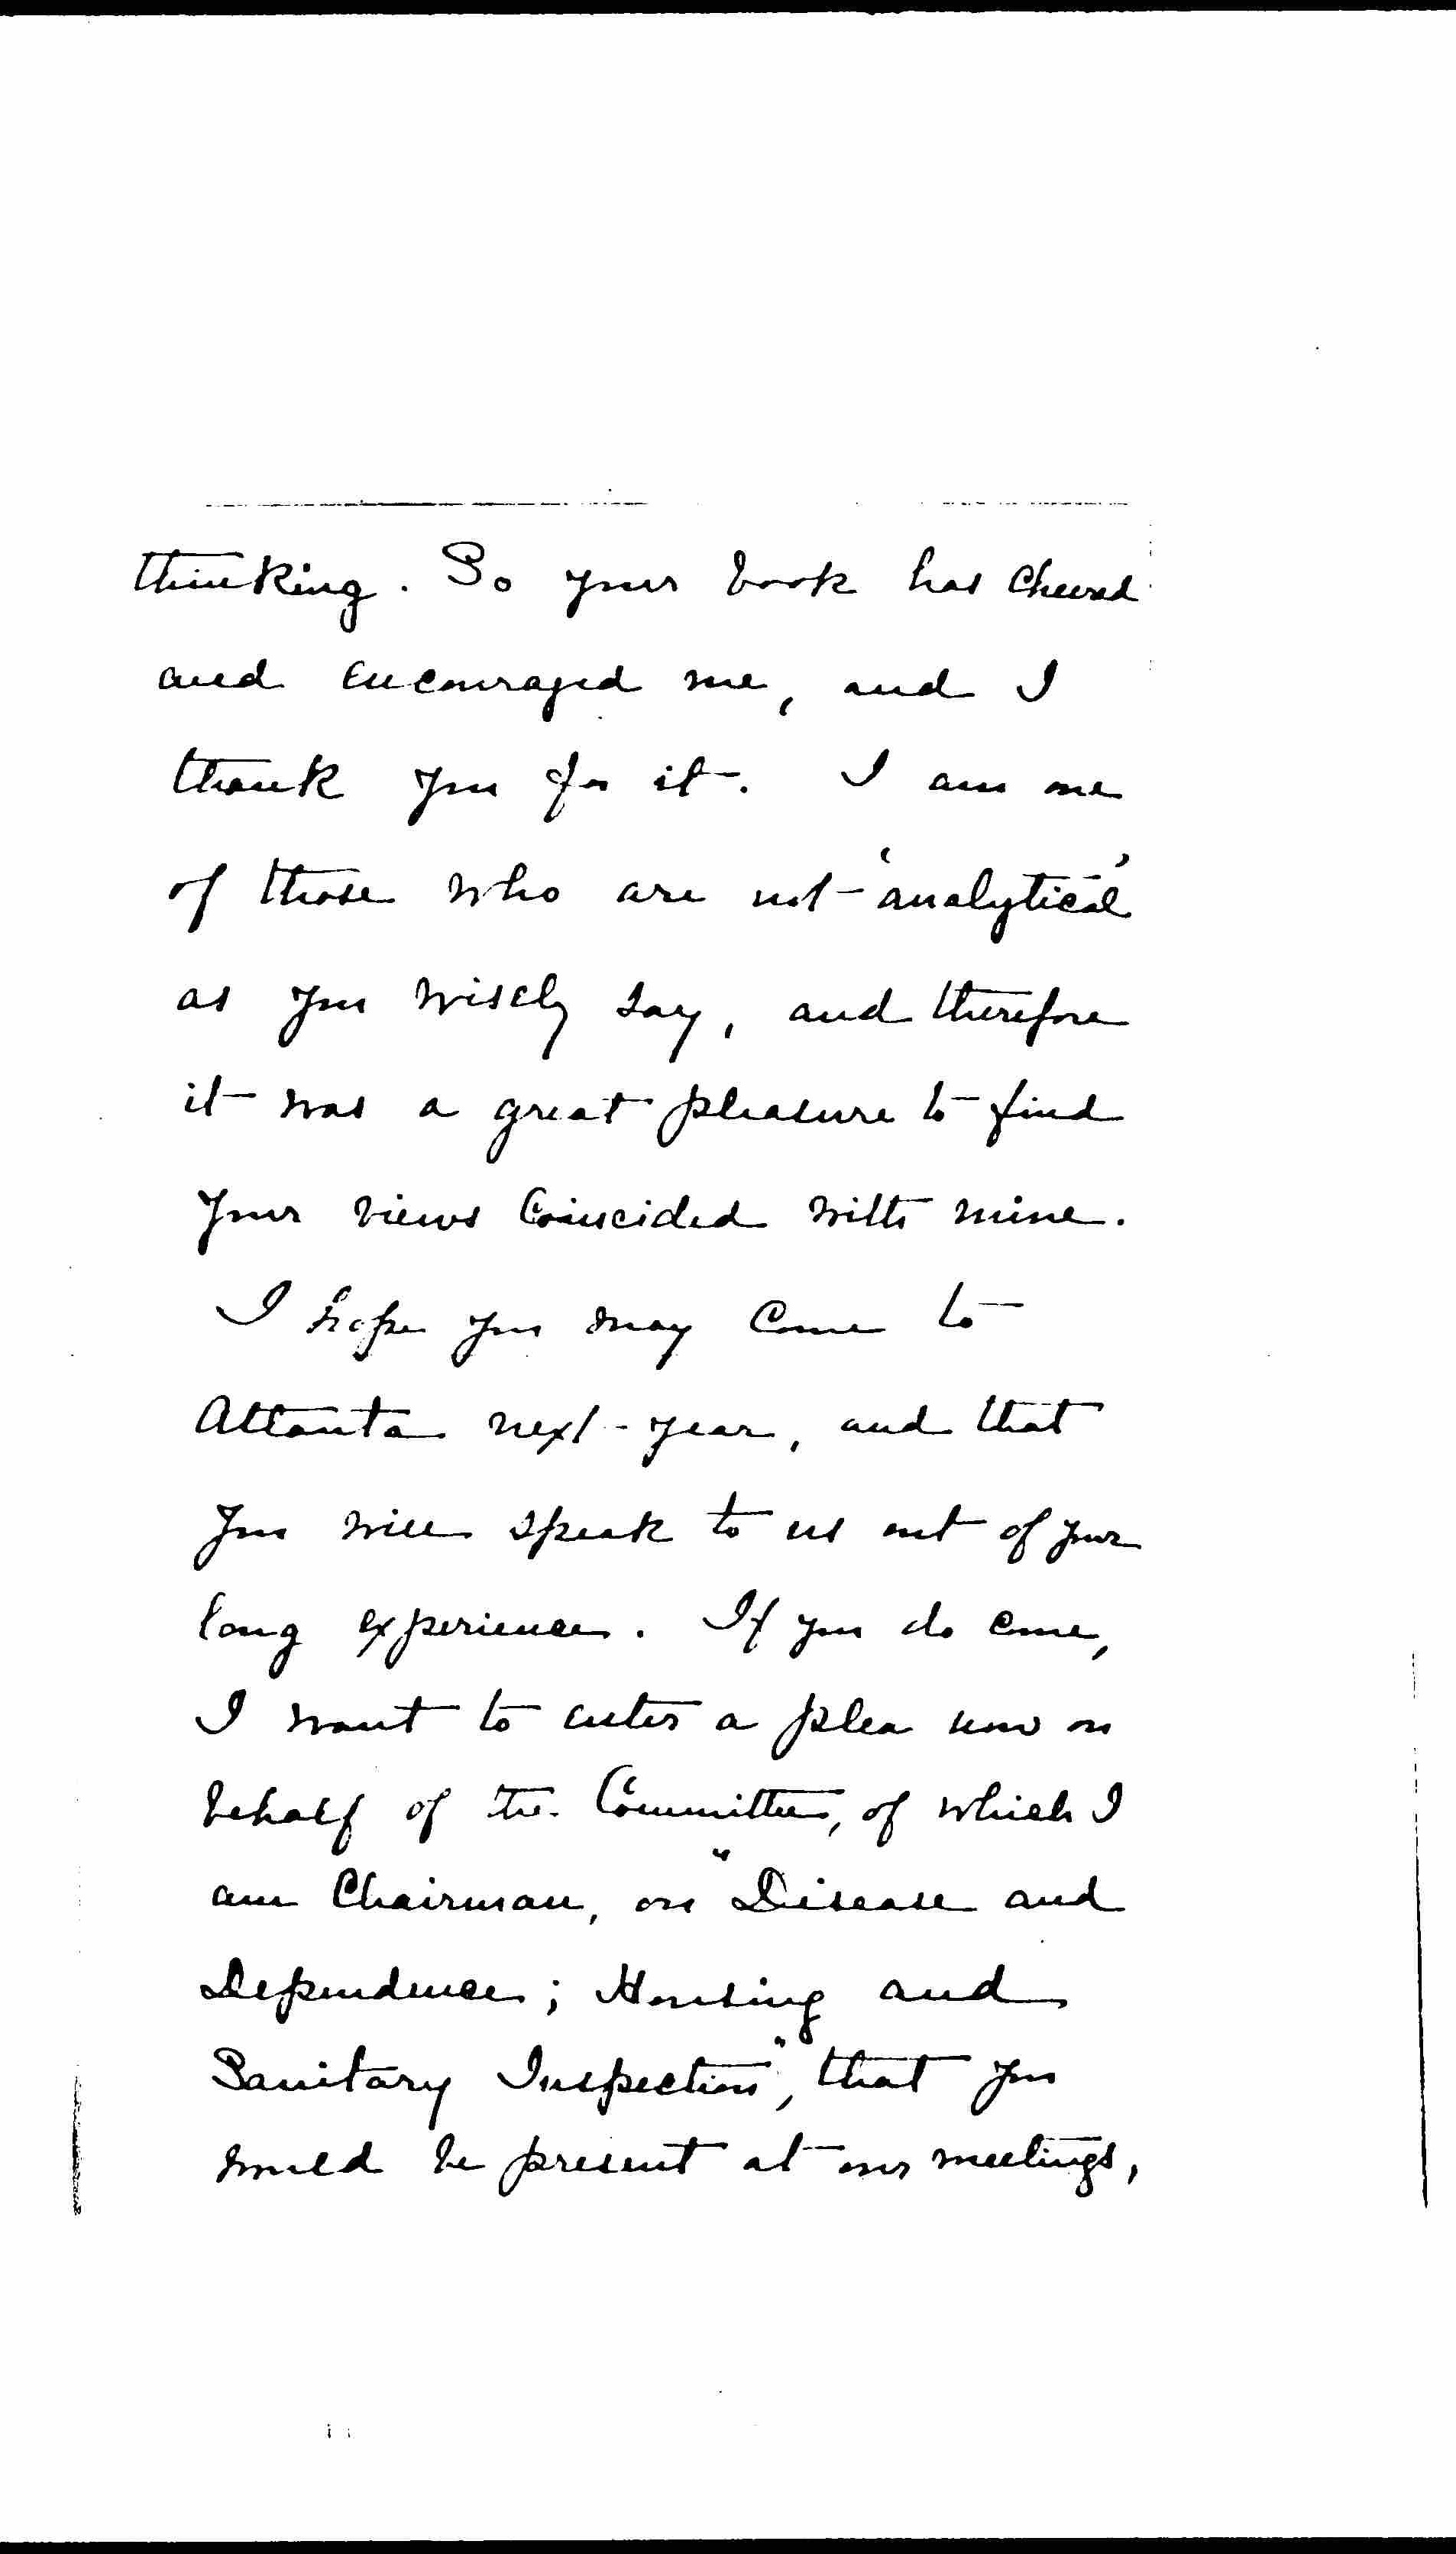 thinking. So your book has cheered
and encouraged me, and I
thank you for it. I am one
of those who are not 'analytical'
as you wisely say, and therefore
it was a great pleasure to find
your views coincided with mine.
I hope you may come to
Atlanta next year, and that
you will speak to us out of your
long experience. If you do come,
I want to enter a plea now on
behalf of the Committee, of which I
am Chairman, on "Disease and
Dependence; Housing and
Sanitary Inspection", that you
would be present at our meetings,